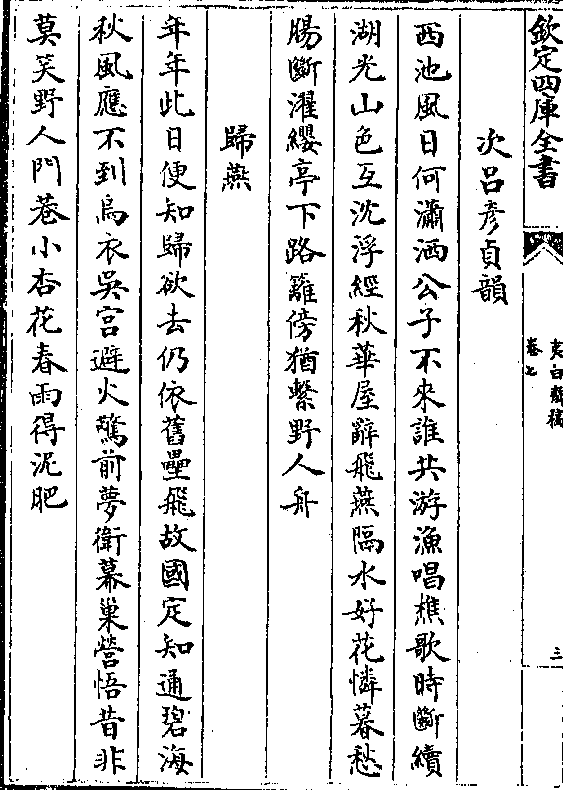 欽定四庫全書
夷白齋稿
卷七
三
次呂彥貞韻
西池風日何瀟洒公子不來誰共游漁唱樵歌時斷續
湖光山色互沈浮經秋華屋辭飛燕隔水好花憐暮愁
腸斷濯纓亭下路籬傍猶繫野人舟
歸燕
年年此日便知歸欲去仍依舊壘飛故國定知通碧海
秋風應不到烏衣吳宮避火驚前夢衛幕巢營悟昔非
莫笑野人門巷小杏花春雨得泥肥